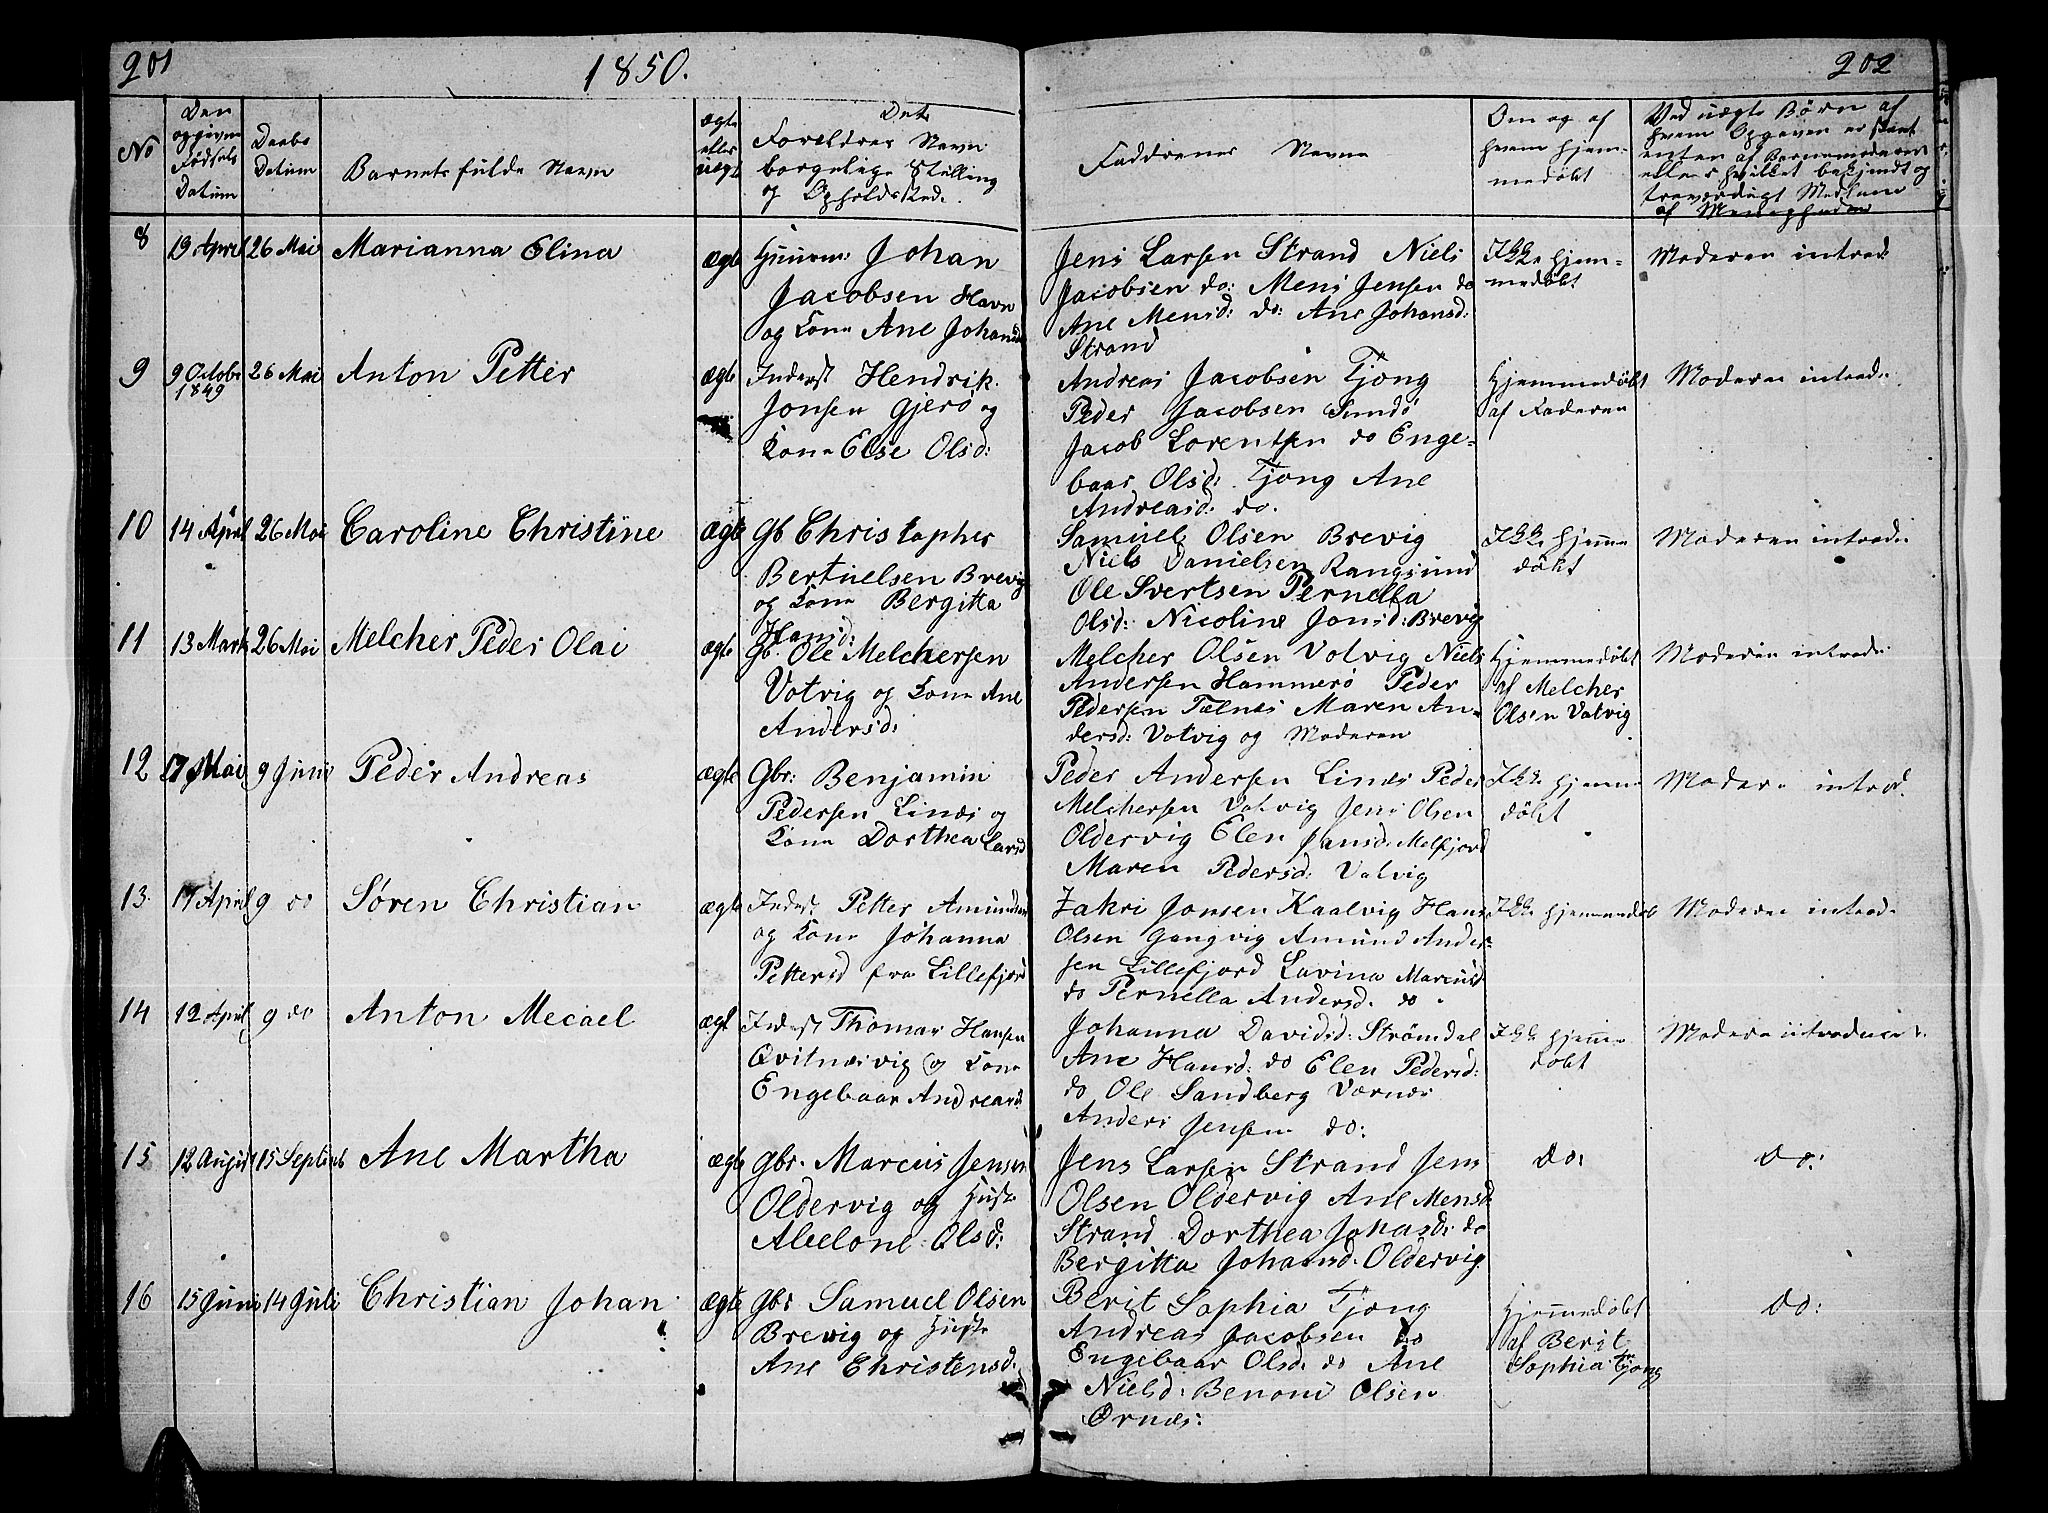 201
1850.
202
No
Den
opgivne
Fødsels
Datum
Daabs
Datum
Barnets fulde Navn
ægte
eller
uægte
Dets
Forældres Navn
borgelige Stilling
og Opholdssted.
Faddrenes Navne
Om og af
hvem hjem-
medøbt
Ved uægte Børn af
hvem Opgaven er skeet
enten af Barnemoderen
eller hvilket bekjendt og
troværdigt Medlem
af Menigheden
8
19 April
26 Mai
Marianna Elina
ægte
Huusm: Johan
Jacobsen Havn
og Kone Ane Johansd
Jens Larsen Strand Niels
Jacobsen do: Mens Jensen do
Ane Mensd: do: Ane Johansd:
Strand
Ikke hjem-
medøbt
Moderen introd:
9
9 Octobr
1849
26 Mai
Anton Petter
ægte
Inderst Hendrik
Jonsen Gjerø og
Kone Else Olsd:
Andreas Jacobsen Tjong
Peder Jacobsen Sundø
Jacob Lorentsen do Enge-
baar Olsd: Tjong Ane
Andreasd: do.
Hjemmedøbt
af Faderen
Moderen introd:
10
14 April
26 Mai
Caroline Christine
ægte
Gb Christopher
Bertuelsen Brevig
og Kone Bergitta
Hansd:
Samuel Olsen Brevig
Niels Danielsen Rangsund
Ole Svertsen Pernella
Olsd: Nicoline Jonsd: Brevig
Ikke hjemme
døbt
Moderen introd:
11
13 Marts
26 Mai
Melcher Peder Olai
ægte
Gb. Ole Melchersen
Votvig og Kone Ane
Andersd:
Melcher Olsen Votvig Niels
Andersen Hammerø Peder
Pedersen Telnes Maren An-
dersd: Votvig og Moderen
Hjemmedøbt
af Melcher
Olsen Vatvig
Moderen introd:
12
17 Mai
9 Juni
Peder Andreas
ægte
Gbr: Benjamin
Pedersen Lines og
Kone Dorthea Larsd
Peder Andersen Lines Peder
Melchersen Vatvig Jens Olsen
Oldervig Elen Jansd: Melfjord
Maren Pedersd: Vatvig
Ikke hjemme
døbt
Modere introd.
13.
17 April
9 do
Søren Christian
ægte
Inderst Petter Amundsen
og Kone Johanna
Pettersd fra Lillefjord
Zakri Jonsen Kaalvig Hans
Olsen Gangvig Amund Ander-
sen Lillefjord Lavina Marcusd
do Pernella Andersd. do
Ikke hjemmedøbt
Moderen introd.
14
12 April
9 do
Anton Mecael
ægt
Inderst Thomas Hansen
Qvitnesvig og Kone
Engebaar Andreasd:
Johanna Davidsd: Strømdal
Ane Hansd: do Elen Pedersd:
do Ole Sandberg Værnes
Anders Jensen do:
Ikke hjemme
døbt
Modere introducert.
15
12 August
15 Septemb
Ane Martha
ægte
Gbr. Marcus Jensen
Oldervig og Hustr
Abelone Olsd:
Jens Larsen Strand Jens
Olsen Oldervig Ane Mensd:
Strand Dorthea Johasd: do
Bergitta Johansd. Oldervig.
do:
do:
16
15 Juni
14 Juli
Christian Johan
ægte
Gbr Samuel Olsen
Brevig og Hustr
Ane Christensd.
Berit Sophia Tjong
Andreas Jacobsen do
Engebaar Olsd. do Ane
Nielsd: Benoni Olsen
Ørnes:
Hjemmedøbt
af Berit
Sophia Tjong
do: